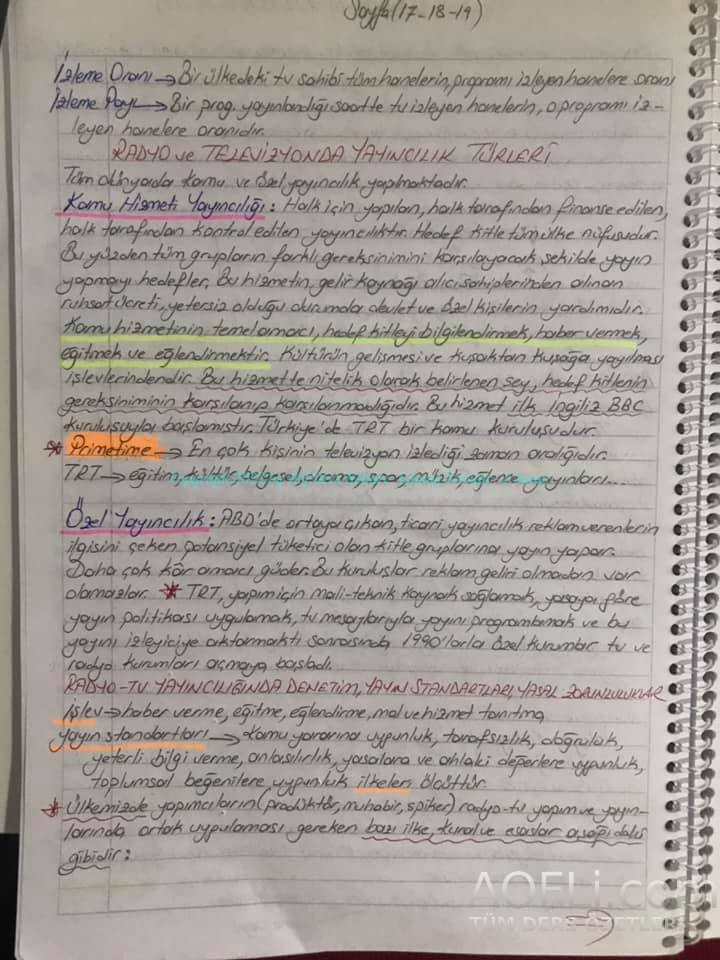 Sayfa (17-18-19)
İzleme Oranı → Bir ülkedeki tv sahibi tüm hanelerin, programı izleyen hanelere oranı
İzleme Payı → Bir prog. yayınlandığı saatte tv izleyen hanelerin, o programı iz-
leyen hanelere oranıdır.
RADYO ve TELEVİZYONDA YAYINCILIK TÜRLERİ
Tüm dünyada kamu ve özel yayıncılık yapılmaktadır.
Kamu Hizmeti Yayıncılığı: Halk için yapılan, halk tarafından finanse edilen,
halk tarafından kontrol edilen yayıncılıktır. Hedef kitle tüm ülke nüfusudur.
Bu yüzden tüm grupların farklı gereksinimini karşılayacak şekilde yayın
yapmayı hedefler. Bu hizmetin, gelir kaynağı alıcı sahiplerinden alınan
ruhsat ücreti, yetersiz olduğu durumda devlet ve özel kişilerin yardımıdır.
Kamu hizmetinin temel amacı, hedef kitleyi bilgilendirmek, haber vermek,
eğitmek ve eğlendirmektir. Kültürün gelişmesi ve kuşaktan kuşağa yayılması
işlevlerindendir. Bu hizmette nitelik olarak belirlenen şey, hedef kitlenin
gereksiniminin karşılanıp karşılanmadığıdır. Bu hizmet ilk İngiliz BBC
kuruluşuyla başlamıştır. Türkiye'de TRT bir kamu kuruluşudur.
* Primetime → En çok kişinin televizyon izlediği zaman aralığıdır.
TRT → eğitim, kültür, belgesel, drama, spor, müzik, eğlence yayınları...
Özel Yayıncılık: ABD'de ortaya çıkan, ticari yayıncılık reklam verenlerin
ilgisini çeken potansiyel tüketici olan kitle gruplarına yayın yapar.
Daha çok kâr amacı güder. Bu kuruluşlar reklam geliri olmadan var
olamazlar. * TRT, yapım için mali-teknik kaynak sağlamak, yasaya göre
yayın politikası uygulamak, tv mesajlarıyla yayını programlamak ve bu
yayını izleyiciye aktarmaktı sonrasında 1990'larla özel kurumlar tv ve
radyo kurumları açmaya başladı.
RADYO-TV YAYINCILIĞINDA DENETİM, YAYIN STANDARTLARI, YASAL ZORUNLULUKLAR
İşlev → haber verme, eğitme, eğlendirme, mal ve hizmet tanıtma
Yayın standartları → Kamu yararına uygunluk, tarafsızlık, doğruluk,
yeterli bilgi verme, anlaşılırlık, yasalara ve ahlaki değerlere uygunluk,
toplumsal beğenilere uygunluk ilkeleri ölçüttür.
* Ülkemizde yapımcıların (prodüktör, muhabir, spiker) radyo-tv yapım ve yayın-
larında ortak uygulaması gereken bazı ilke, kural ve esaslar aşağıdaki
gibidir:
AOFLi.com
TÜM DERS ÖZETLERİ